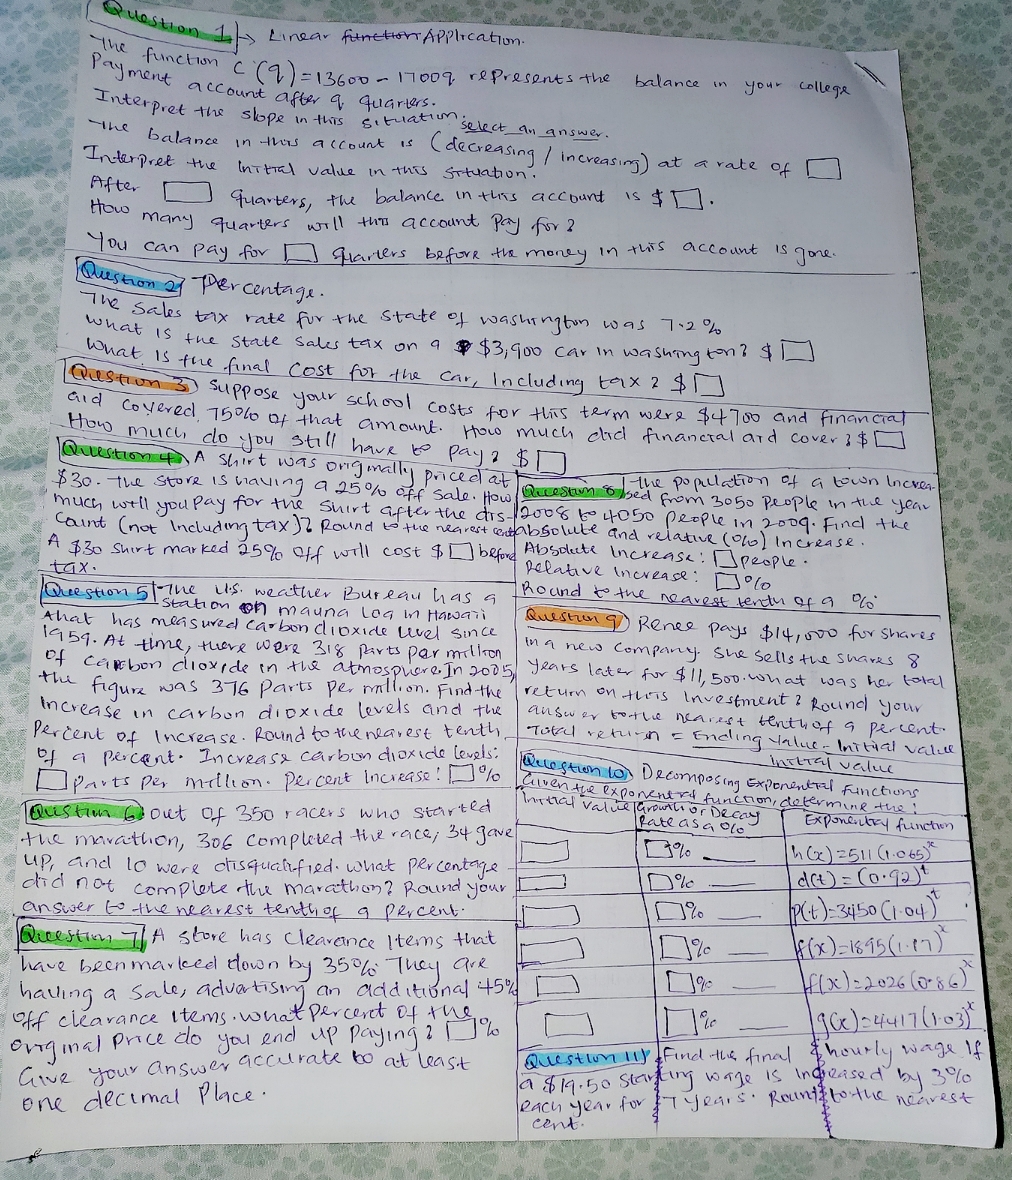 Question 1 → Linear function Application.
The function C(q)=13600-1700q represents the balance in your college
Payment account after q quarters.
Interpret the slope in this situation. select an answer.
The balance in this account is (decreasing / increasing) at a rate of □
Interpret the Initial value in this situation.
After □ quarters, the balance in this account is $ □.
How many quarters will this account pay for?
You can pay for □ quarters before the money in this account is gone.
Question 2 Percentage.
The sales tax rate for the State of washington was 7.2%
What is the State Sales tax on a $3,900 car in washington? $ □
What is the final cost for the car, Including tax? $ □
Question 3 Suppose your school costs for this term were $4700 and financial
aid covered 75% of that amount. How much did financial aid cover? $ □
How much do you still have to pay? $ □
Question 4 A shirt was originally priced at
$30. The store is having a 25% off sale. How
much will you pay for the shirt after the dis-
count (not including tax)? Round to the nearest cent
A $30 shirt marked 25% off will cost $ □ before
tax.
Question 5 The U.S. weather Bureau has a
Station on mauna Loa in Hawaii
that has measured carbon dioxide level since
1959. At time, there were 318 parts per million
of carbon dioxide in the atmosphere. In 2005,
the figure was 376 parts per million. Find the
Increase in carbon dioxide levels and the
Percent of Increase. Round to the nearest tenth
of a percent. Increase carbon dioxide levels:
□ parts per million. Percent Increase! □ %
Question 6 Out of 350 racers who started
the marathon, 306 completed the race, 34 gave
up, and 10 were disqualified. what percentage
did not complete the marathon? Round your
answer to the nearest tenth of a percent.
Question 7 A store has clearance Items that
have been marked down by 35%. They are
having a sale, advertising an additional 45%
off clearance items. what percent of the
original price do you end up paying? □ %
Give your answer accurate to at least
one decimal place.
Question 8 The population of a town Increa-
sed from 3050 people in the year
2008 to 4050 people in 2009. Find the
absolute and relative (%) Increase.
Absolute Increase: □ people.
Relative Increase: □ %
Round to the nearest tenth of a %
Question 9 Renee pays $14,000 for shares
in a new company. She sells the shares 8
years later for $11,500. what was her total
return on this Investment? Round your
answer to the nearest tenth of a percent.
Total return = Ending Value - Initial value
Initial value
Question 10 Decomposing Exponential Functions
Given the exponential function, determine the!
Initial value Growth or Decay Exponential function
Rate as a %
□ □% ___ h(x)=511(1.065)^x
□ □% ___ d(t)=(0.92)^t
□ □% ___ p(t)=3450(1.04)^t
□ □% ___ f(x)=1895(1.17)^x
□ □% ___ f(x)=2026(0.86)^x
□ □% ___ g(x)=4417(1.03)^x
Question 11 Find the final hourly wage if
a $19.50 starting wage is increased by 3%
each year for 7 years. Round to the nearest
cent.